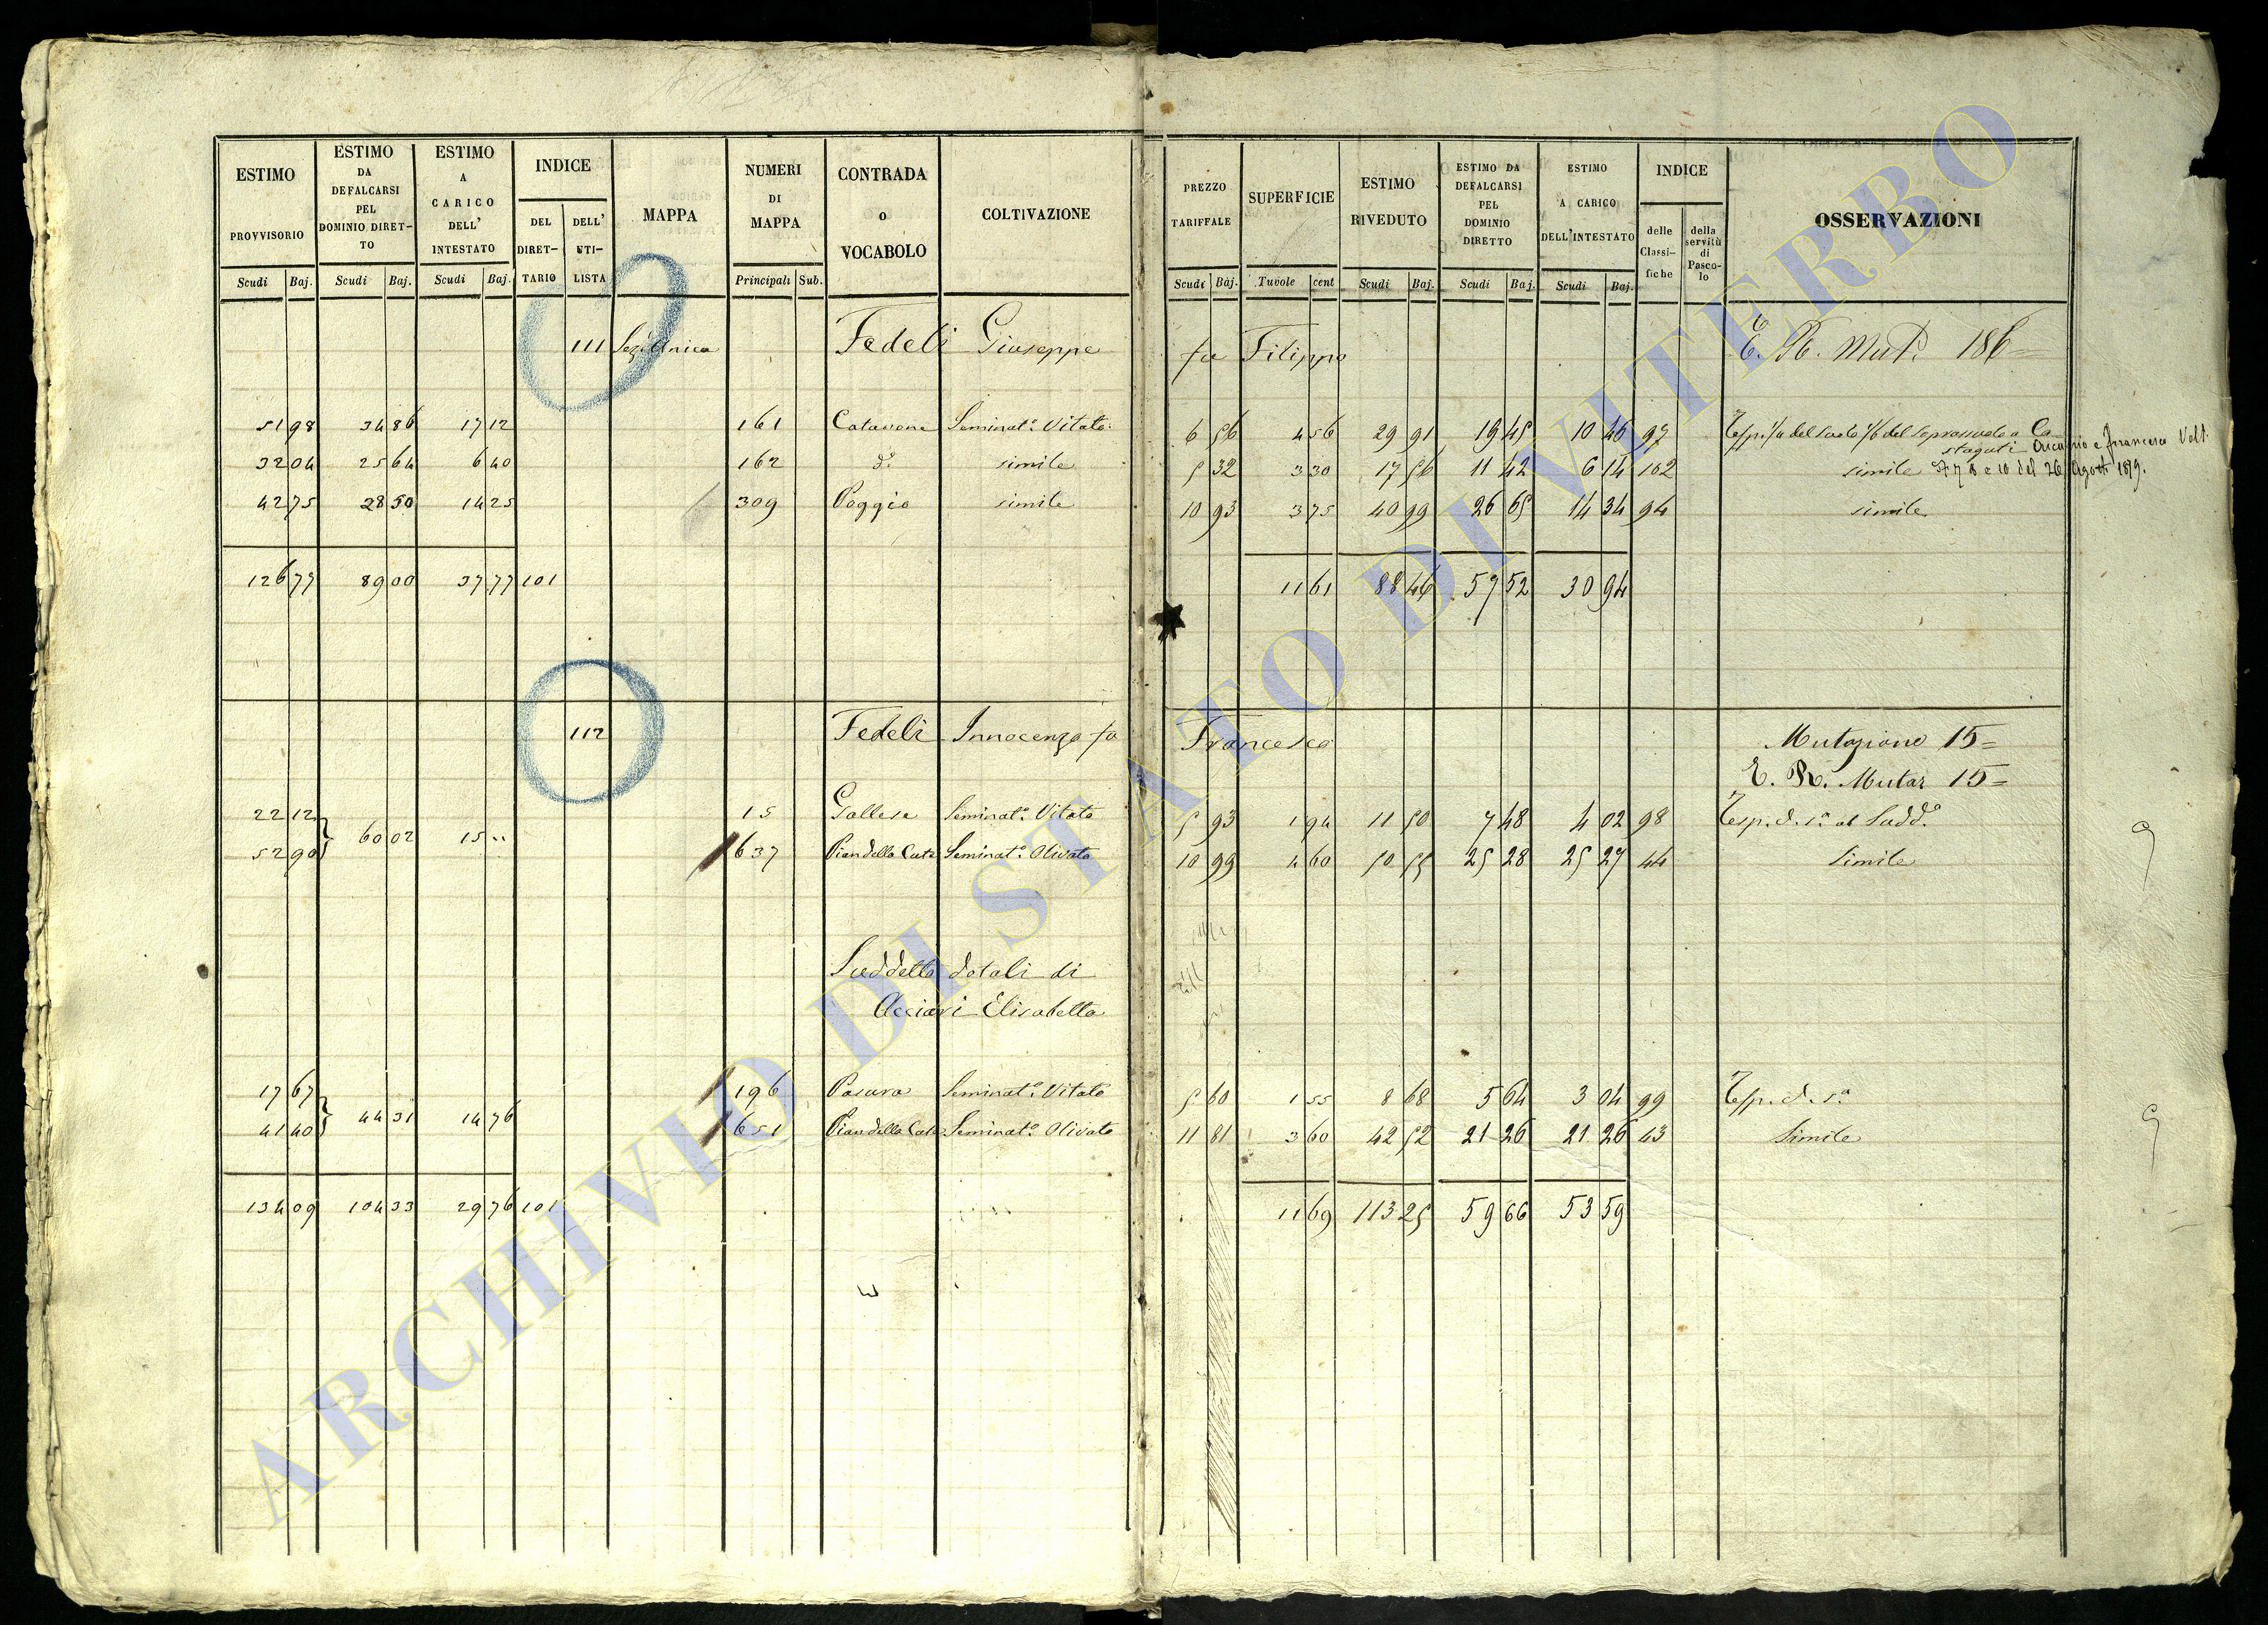 ESTIMO PROVVISORIO Scudi Baj. ESTIMO DA DEFALCARSI PEL DOMINIO DIRET-TO Scudi Baj. ESTIMO A CARICO DELL' INTESTATO Scudi Baj. INDICE DEL DIRET-TARIO DELL' UTI-LISTA MAPPA NUMERI DI MAPPA Principali Sub. CONTRADA O VOCABOLO COLTIVAZIONE
PREZZO TARIFFALE Scudi Baj. SUPERFICIE Tavole cent ESTIMO RIVEDUTO Scudi Baj. ESTIMO DA DEFALCARSI PEL DOMINIO DIRETTO Scudi Baj. ESTIMO A CARICO DELL'INTESTATO Scudi Baj. INDICE delle Classi-fiche della servitù di Pasco-lo OSSERVAZIONI
111 Sez. Unica Fedeli Giuseppe fu Filippo E. R. Mut. 186=
51 98 34 86 17 12 161 Catavone Seminat.o Vitato 6 56 4 56 29 91 19 45 10 46 97
32 04 25 64 6 40 162 d.o simile 5 32 3 30 17 56 11 42 6 14 102 simile
42 75 28 50 14 25 309 Poggio simile 10 93 3 75 40 99 26 65 14 34 94 simile
126 77 89 00 37 77 101 11 61 88 46 57 52 30 94
112 Fedeli Innocenzo fu Francesco Mutazione 15=
E. R. Mutaz 15=
22 12 60 02 15 .. 15 Gallese Seminat.o Vitato 5 93 1 94 11 50 7 48 4 02 98
52 90 637 Pian della Cute Seminat.o Olivato 10 99 4 60 50 55 25 28 25 27 44 Simile
Suddetto dotali di
Acciari Elisabetta
17 67 44 31 14 76 196 Seminat.o Vitato 5 60 1 55 8 68 5 64 3 04 99
41 40 651 Pian della Cute Seminat.o Olivato 11 81 3 60 42 52 21 26 21 26 43 Simile
134 09 104 33 29 76 101 11 69 113 25 59 66 53 59
ARCHIVIO DI STATO DI VITERBO